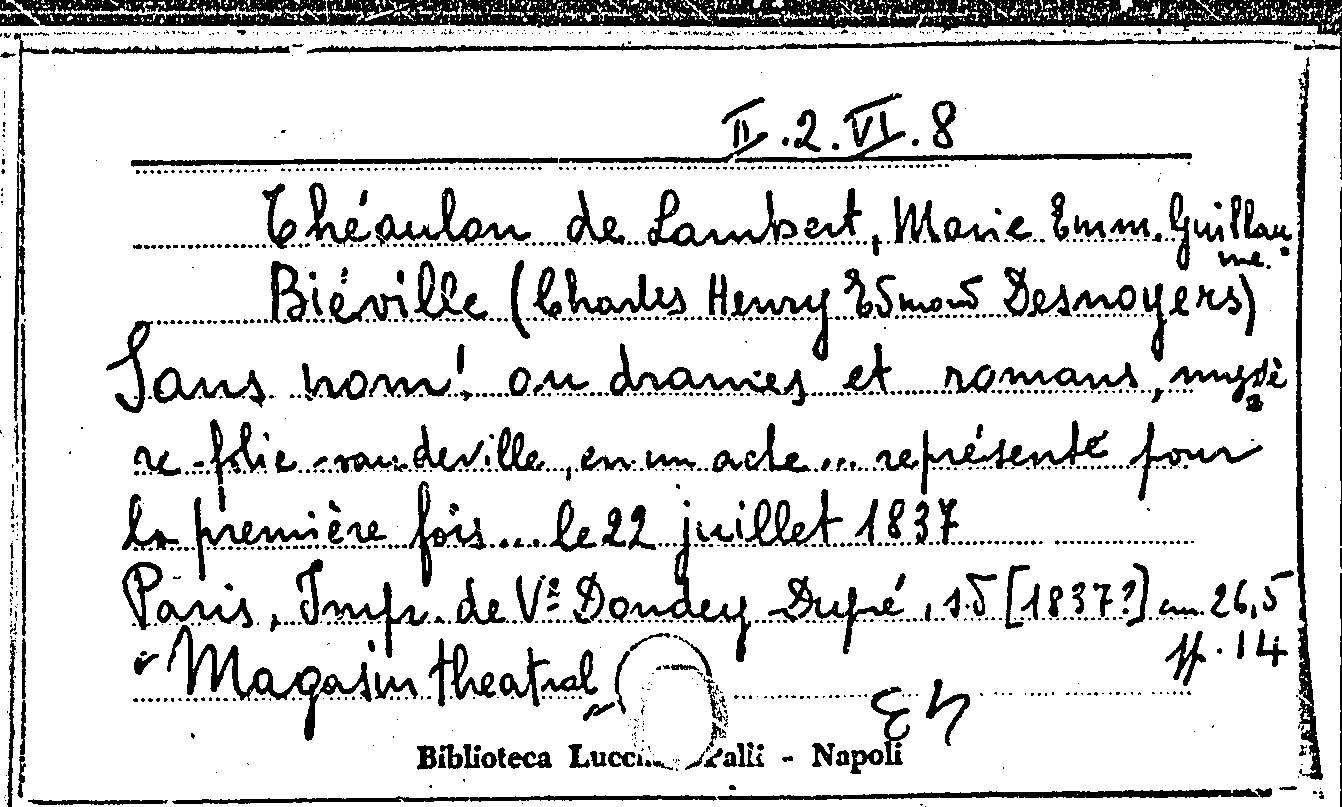 II.2.VI.8
Théaulon de Lambert, Marie Emm. Guillau
me.
Biéville (Charles Henry Edmond Desnoyers)
Sans nom! ou drames et romans, mystè
re-folie-vaudeville, en un acte... représenté pour
la première fois... le 22 juillet 1837
Paris, Impr. de Ve Dondey Dupré, s.d [1837?] cm. 26,5
pp. 14
"Magasin theatral"
Biblioteca Lucchesi Palli - Napoli